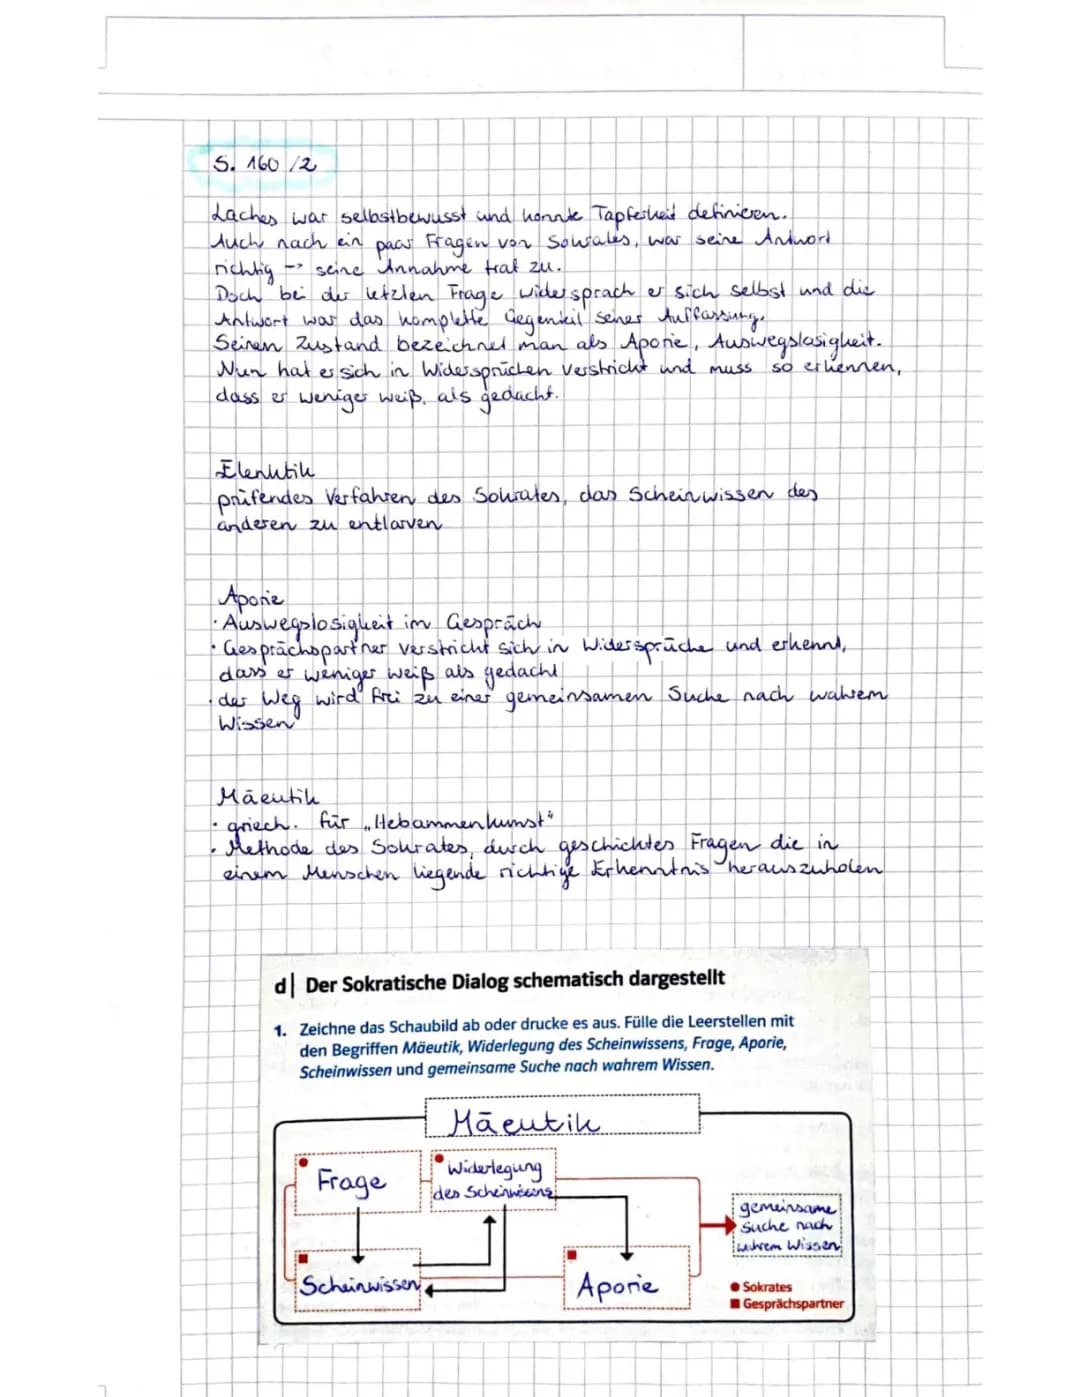 S. 160 /2
Laches war selbstbewusst und konnte Tapferkeit definieren.
Auch nach ein paar Fragen von Sokrates, war seine Antwort
richtig → seine Annahme traf zu.
Doch bei der letzten Frage widersprach er sich selbst und die
Antwort war das komplette Gegenteil seiner Auffassung.
Seinen Zustand bezeichnet man als Aporie, Auswegslosigkeit.
Nun hat er sich in Widersprüchen verstrickt und muss so erkennen,
dass er weniger weiß, als gedacht.
Elenktik
prüfendes Verfahren des Sokrates, das Scheinwissen des
anderen zu entlarven
Aporie
· Auswegslosigkeit im Gespräch
· Gesprächspartner verstrickt sich in Widersprüche und erkennt,
dass er weniger weiß als gedacht
· der Weg wird frei zu einer gemeinsamen Suche nach wahrem
Wissen
Mäeutik
· griech. für „Hebammenkunst"
· Methode des Sokrates, durch geschicktes Fragen die in
einem Menschen liegende richtige Erkenntnis herauszuholen
d| Der Sokratische Dialog schematisch dargestellt
1. Zeichne das Schaubild ab oder drucke es aus. Fülle die Leerstellen mit
den Begriffen Mäeutik, Widerlegung des Scheinwissens, Frage, Aporie,
Scheinwissen und gemeinsame Suche nach wahrem Wissen.
Mäeutik
Frage
Widerlegung
des Scheinwissens
gemeinsame
Suche nach
wahrem Wissen
Scheinwissen
Aporie
Sokrates
Gesprächspartner